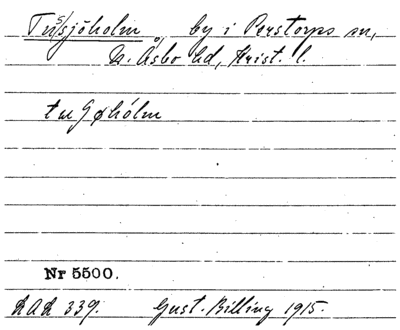 Tussjöholm, by i Perstorps sn,
N. Åsbo hd, Krist. l.
Nr 5500.
LAL 339. Gust. Billing 1915.